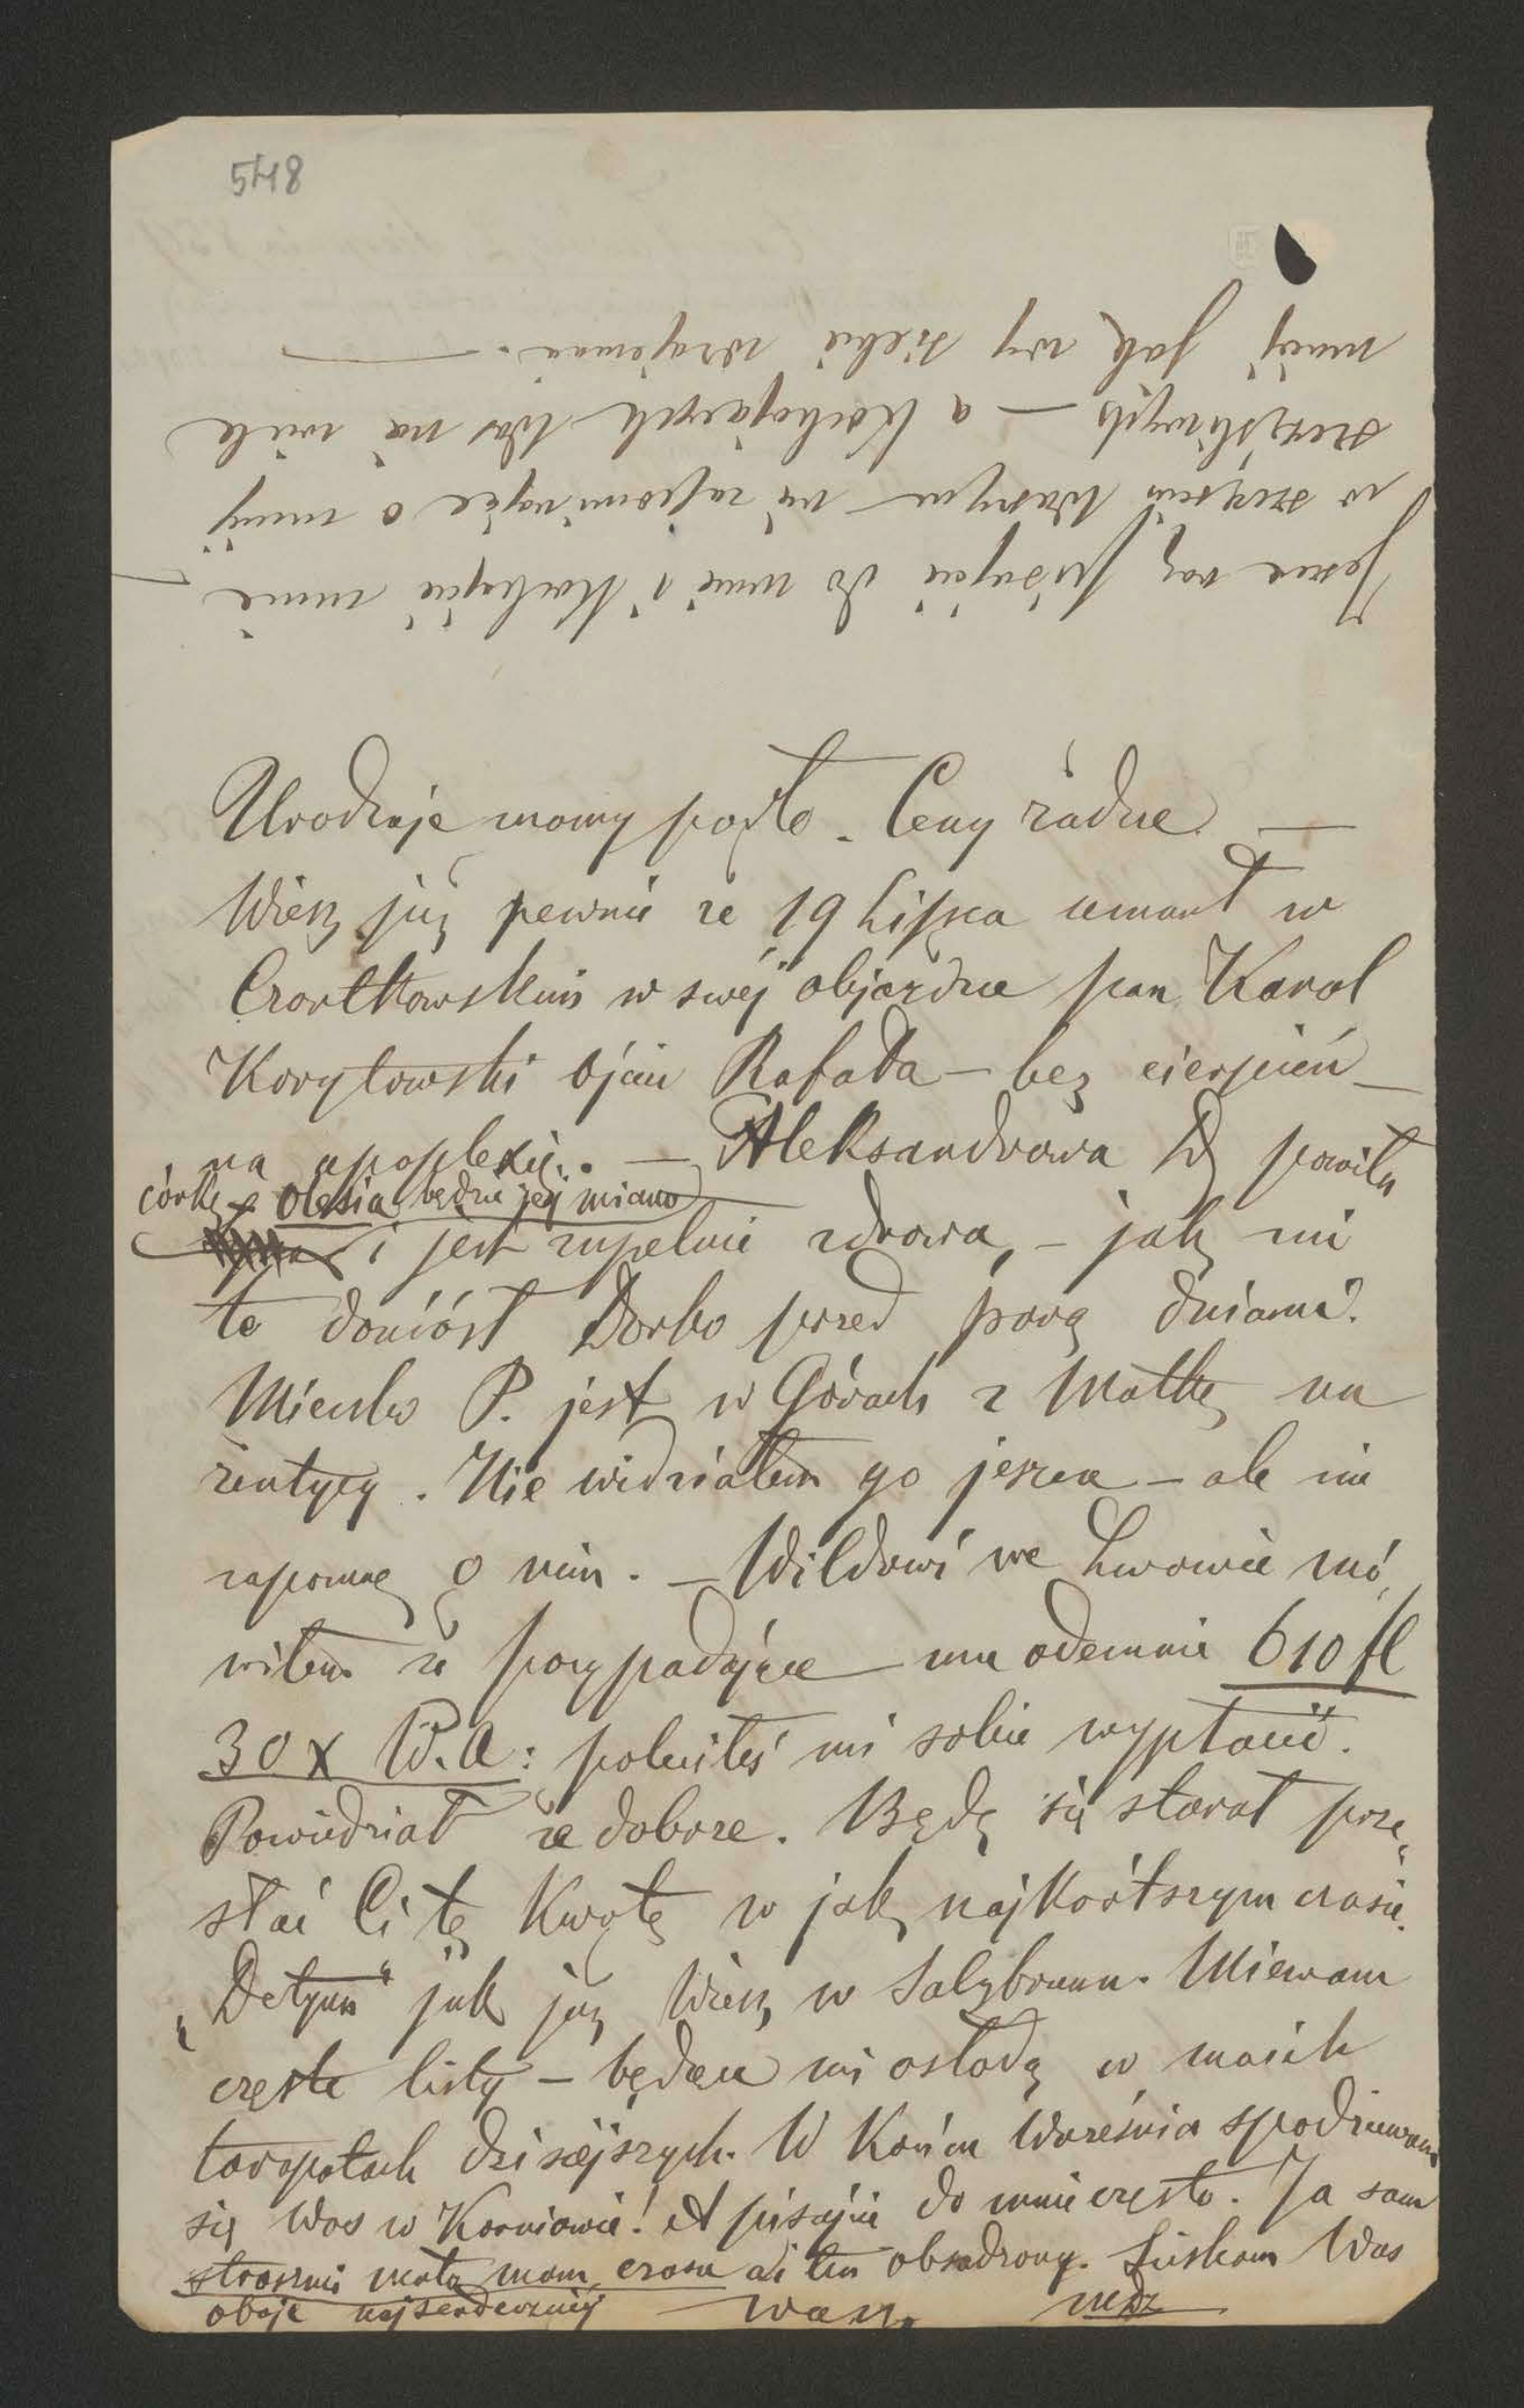 548
Jeszcze raz pisujcie do mnie i Kochajcie mnie
w szczęściu Waszym — nie zapominajcie o mniej
szczęśliwych — a Kochających Was nie wiele
mniej jak wy siebie wzajemnie. —
Urodzaje mamy podłe. Ceny żadne —
Wiesz już pewnie że 19 Lipca umarł w
Czortkowskiem w swéj objeździe pan Karol
Korytowski Ojciec Rafała — bez cierpień —
na apoplexię. — Aleksandrowa D powiła
córkę Olesia będzie jéj miano
i jest zupełnie zdrowa, — jak mi
to doniósł Dorko przed parą dniami.
Miecio P. jest w Górach z Matką na
żentycy. Nie widziałem go jeszcze — ale nie
zapomnę o nim. — Wildowi we Lwowie mó„
wiłem że przypadające mu odemnie 610 fl
30 x W.A: poleciłeś mi sobie wypłacić.
Powiedział że dobrze. Będę się starał prze„
słać Ci tę Kwotę w jak najkrótszym czasie.
„Detyna“ jak już Wiesz w Salzbrunn. Miewam
częste listy — będące mi osłodą w moich
kłopotach dzisiejszych. W Końcu Września spodziewam
się Was w Korniowie! A pisujcie do mnie często. Ja sam
strasznie mało mam czasu ale ten obsadzony. Ściskam Was
oboje najserdeczniej Wasz